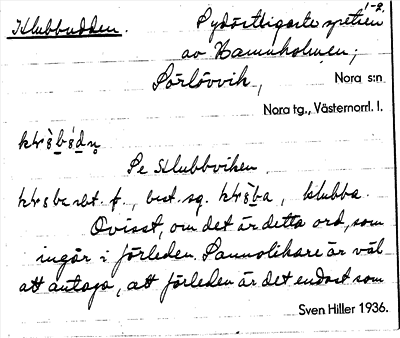 Klubbudden. Sydöstligaste spetsen 1-2.
av Hamnholmen;
Sörlövvik, Nora s:n
Nora tg., Västernorrl. l.
Se Klubbviken
subst. f., best. sg. , klubba.
Ovisst, om det är detta ord, som
ingår i förleden. Sannolikare är väl
att antaga, att förleden är det endast som
Sven Hiller 1936.